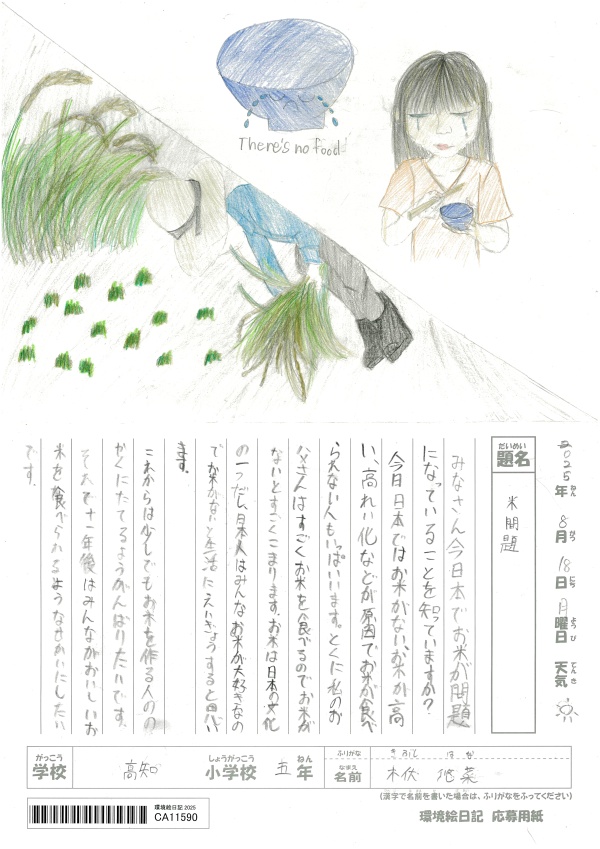 There's no food
2025年 8月 18日 月曜日 天気
ねん がつ にち ようび てんき
だいめい
題名
米問題
みなさん今日本でお米が問題
になっていることを知っていますか?
今日日本ではお米がない、お米が高
い、高れい化などが原因でお米が食べ
られない人もいっぱいいます。とくに私のお
父さんはすごくお米を食べるのでお米が
ないとすごくこまります。お米は日本の文化
の一つだし、日本人はみんなお米が大好きなの
でお米がないと生活にえいきょうすると思い
ます。
これからは少しでもお米を作る人の
くにたてるようがんばりたいです。
そして十一年後はみんながおいしいお
米を食べられるようなせかいにしたい
です。
がっこう しょうがっこう ねん ふりがな
学校 高知 小学校 五年 なまえ 名前 木伏
(漢字で名前を書いた場合は、ふりがなをふってください)
環境絵日記 2025
CA11590
環境絵日記 応募用紙